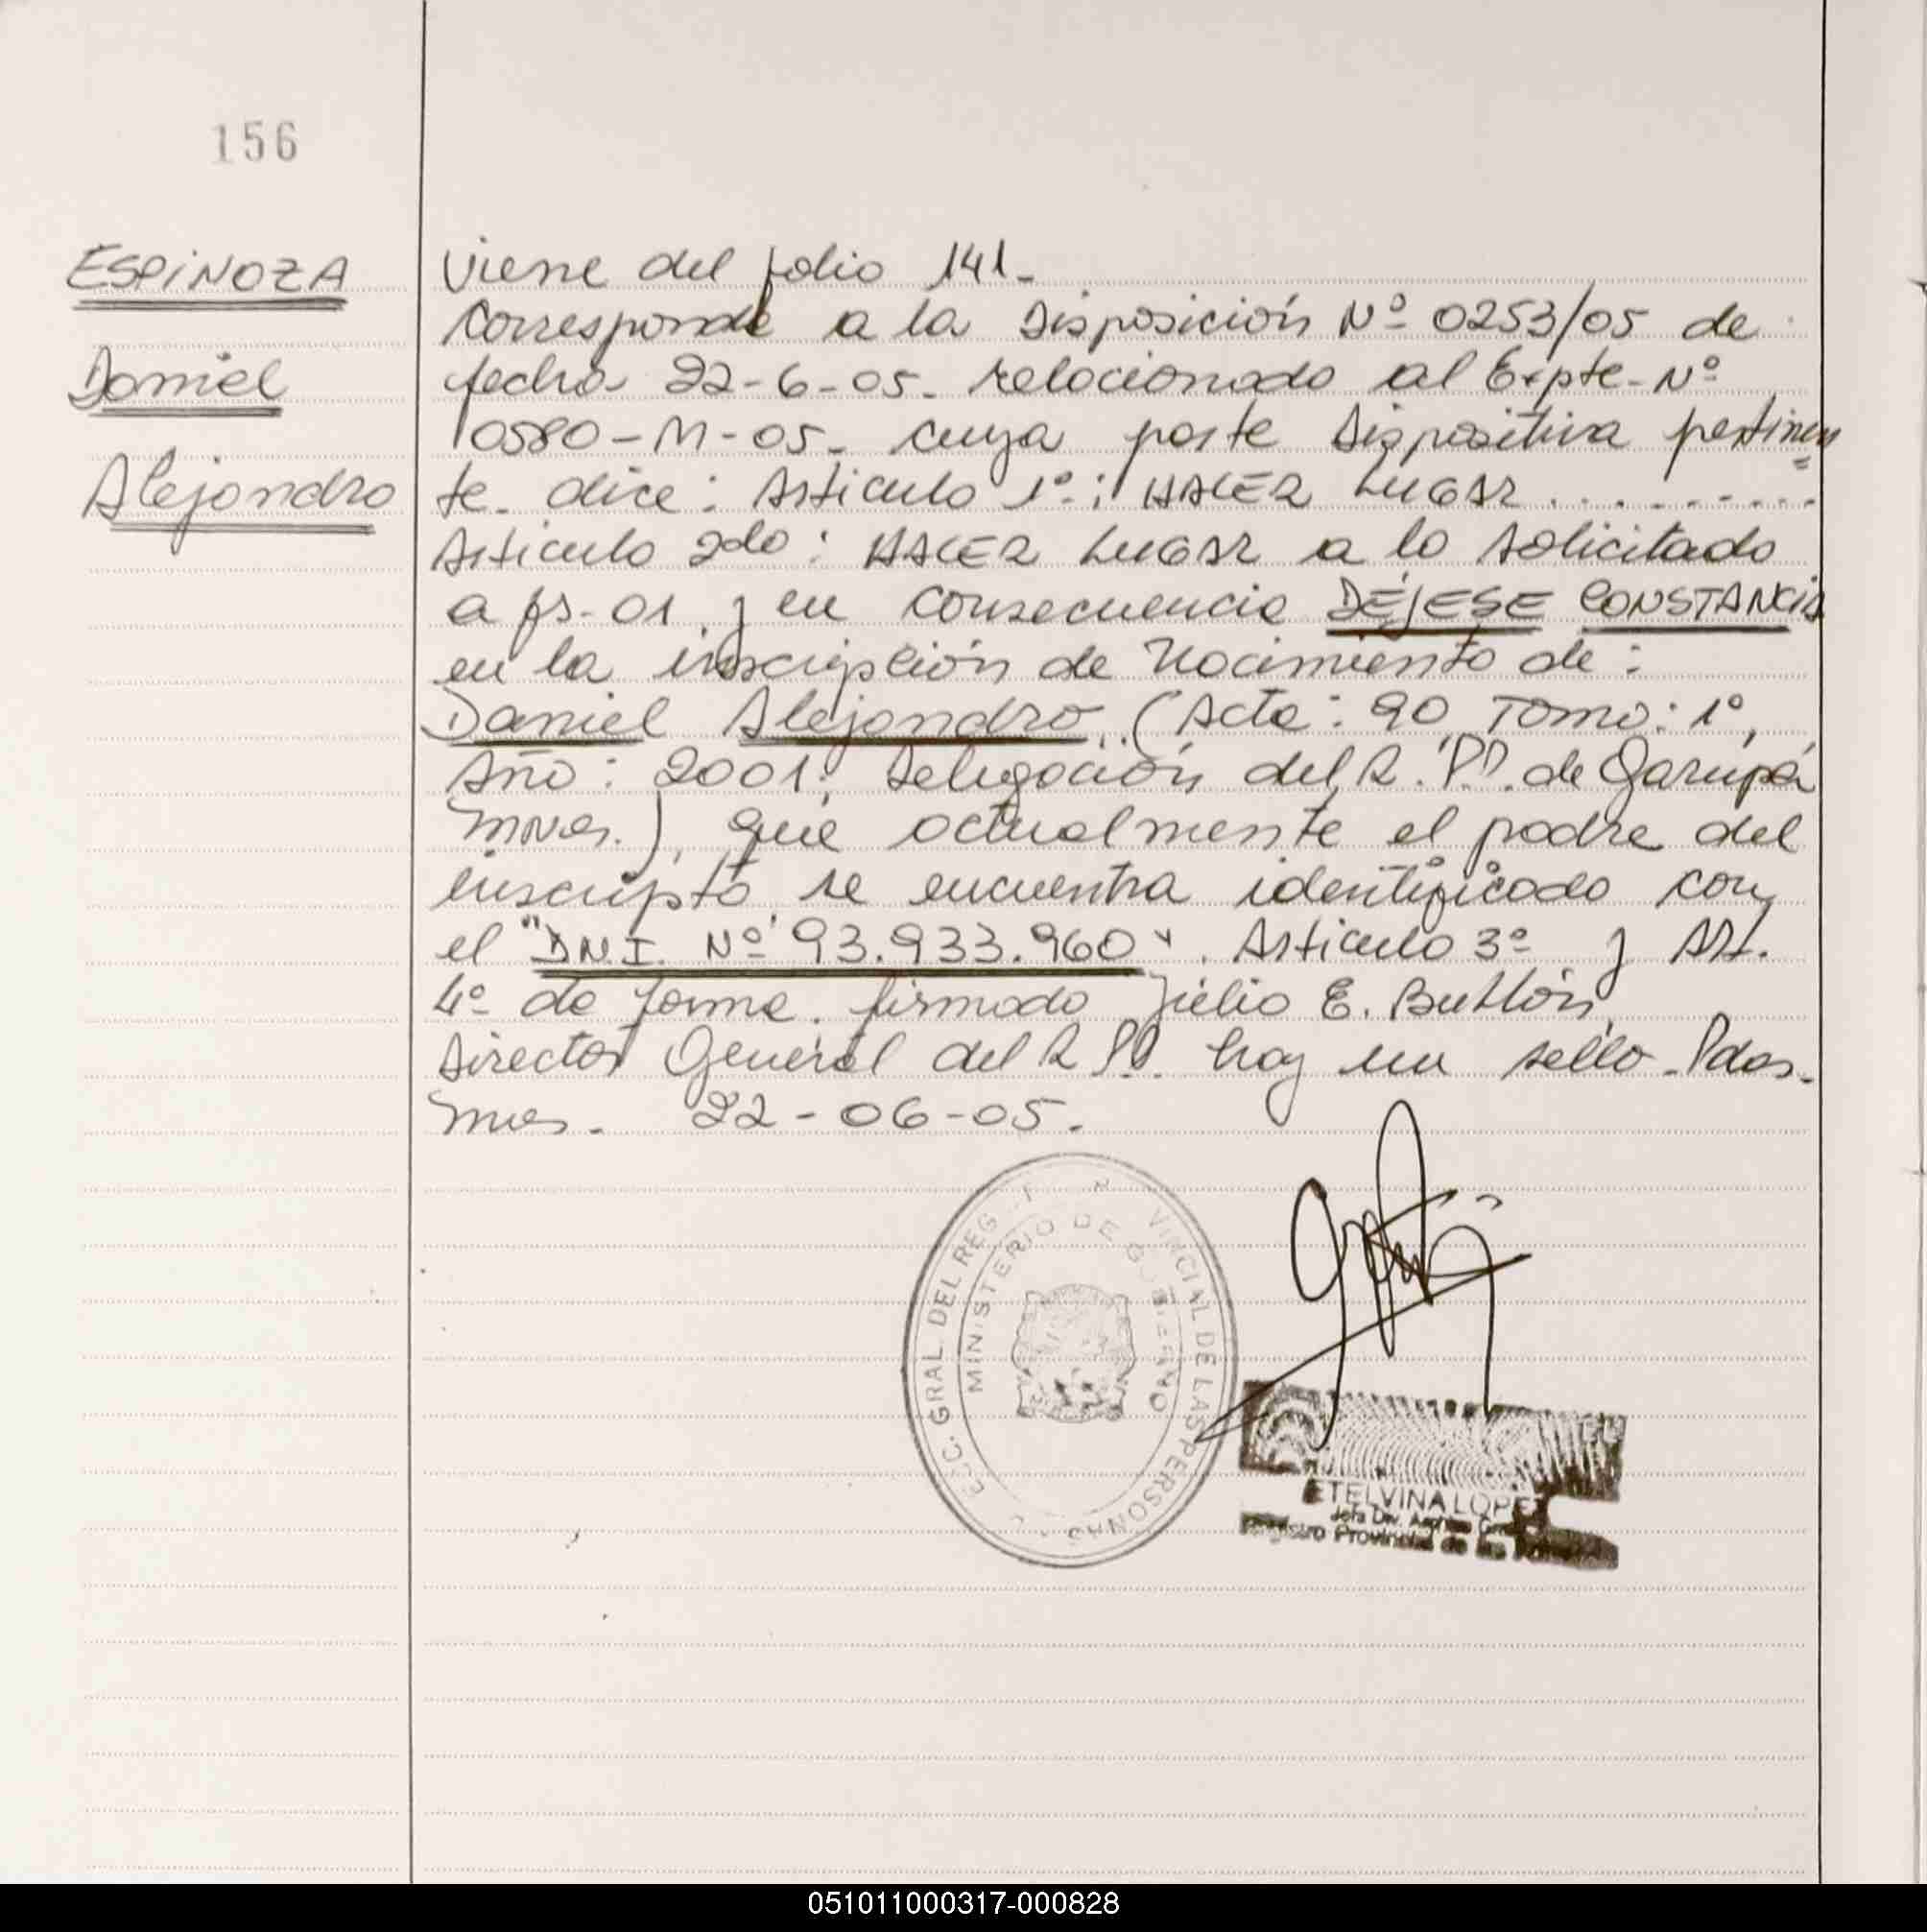 156
ESPINOZA
Daniel
Alejandro
Viene del folio 141-
Corresponde a la Disposición Nº 0253/05 de
fecha 22-6-05- relacionado al Expte- Nº
0580-M-05- cuya parte Dispositiva pertinen
te- dice: Articulo 1º: HACER LUGAR..........
Articulo 2do: HACER LUGAR a lo solicitado
a fs-01 y en consecuencia DÉJESE CONSTANCIA
en la inscripción de Nacimiento de:
Daniel Alejandro (Acta: 90, Tomo: 1º,
Año: 2001; Delegación del R.PP. de Garupá
Mnes.), que actualmente el padre del
inscripto se encuentra identificado con
el "D.N.I. Nº 93.933.960". Articulo 3º y Art.
4º de forma. firmado Julio E.
Director General del R PP. hay un sello- Pdas-
Mnes- 22-06-05.
GRAL. DEL REG. VINCIAL DE LAS PERSONAS
MINISTERIO DE GOBIERNO
ETELVINA LOPEZ
Jefa Div.
Registro Provincial de las
051011000317-000828